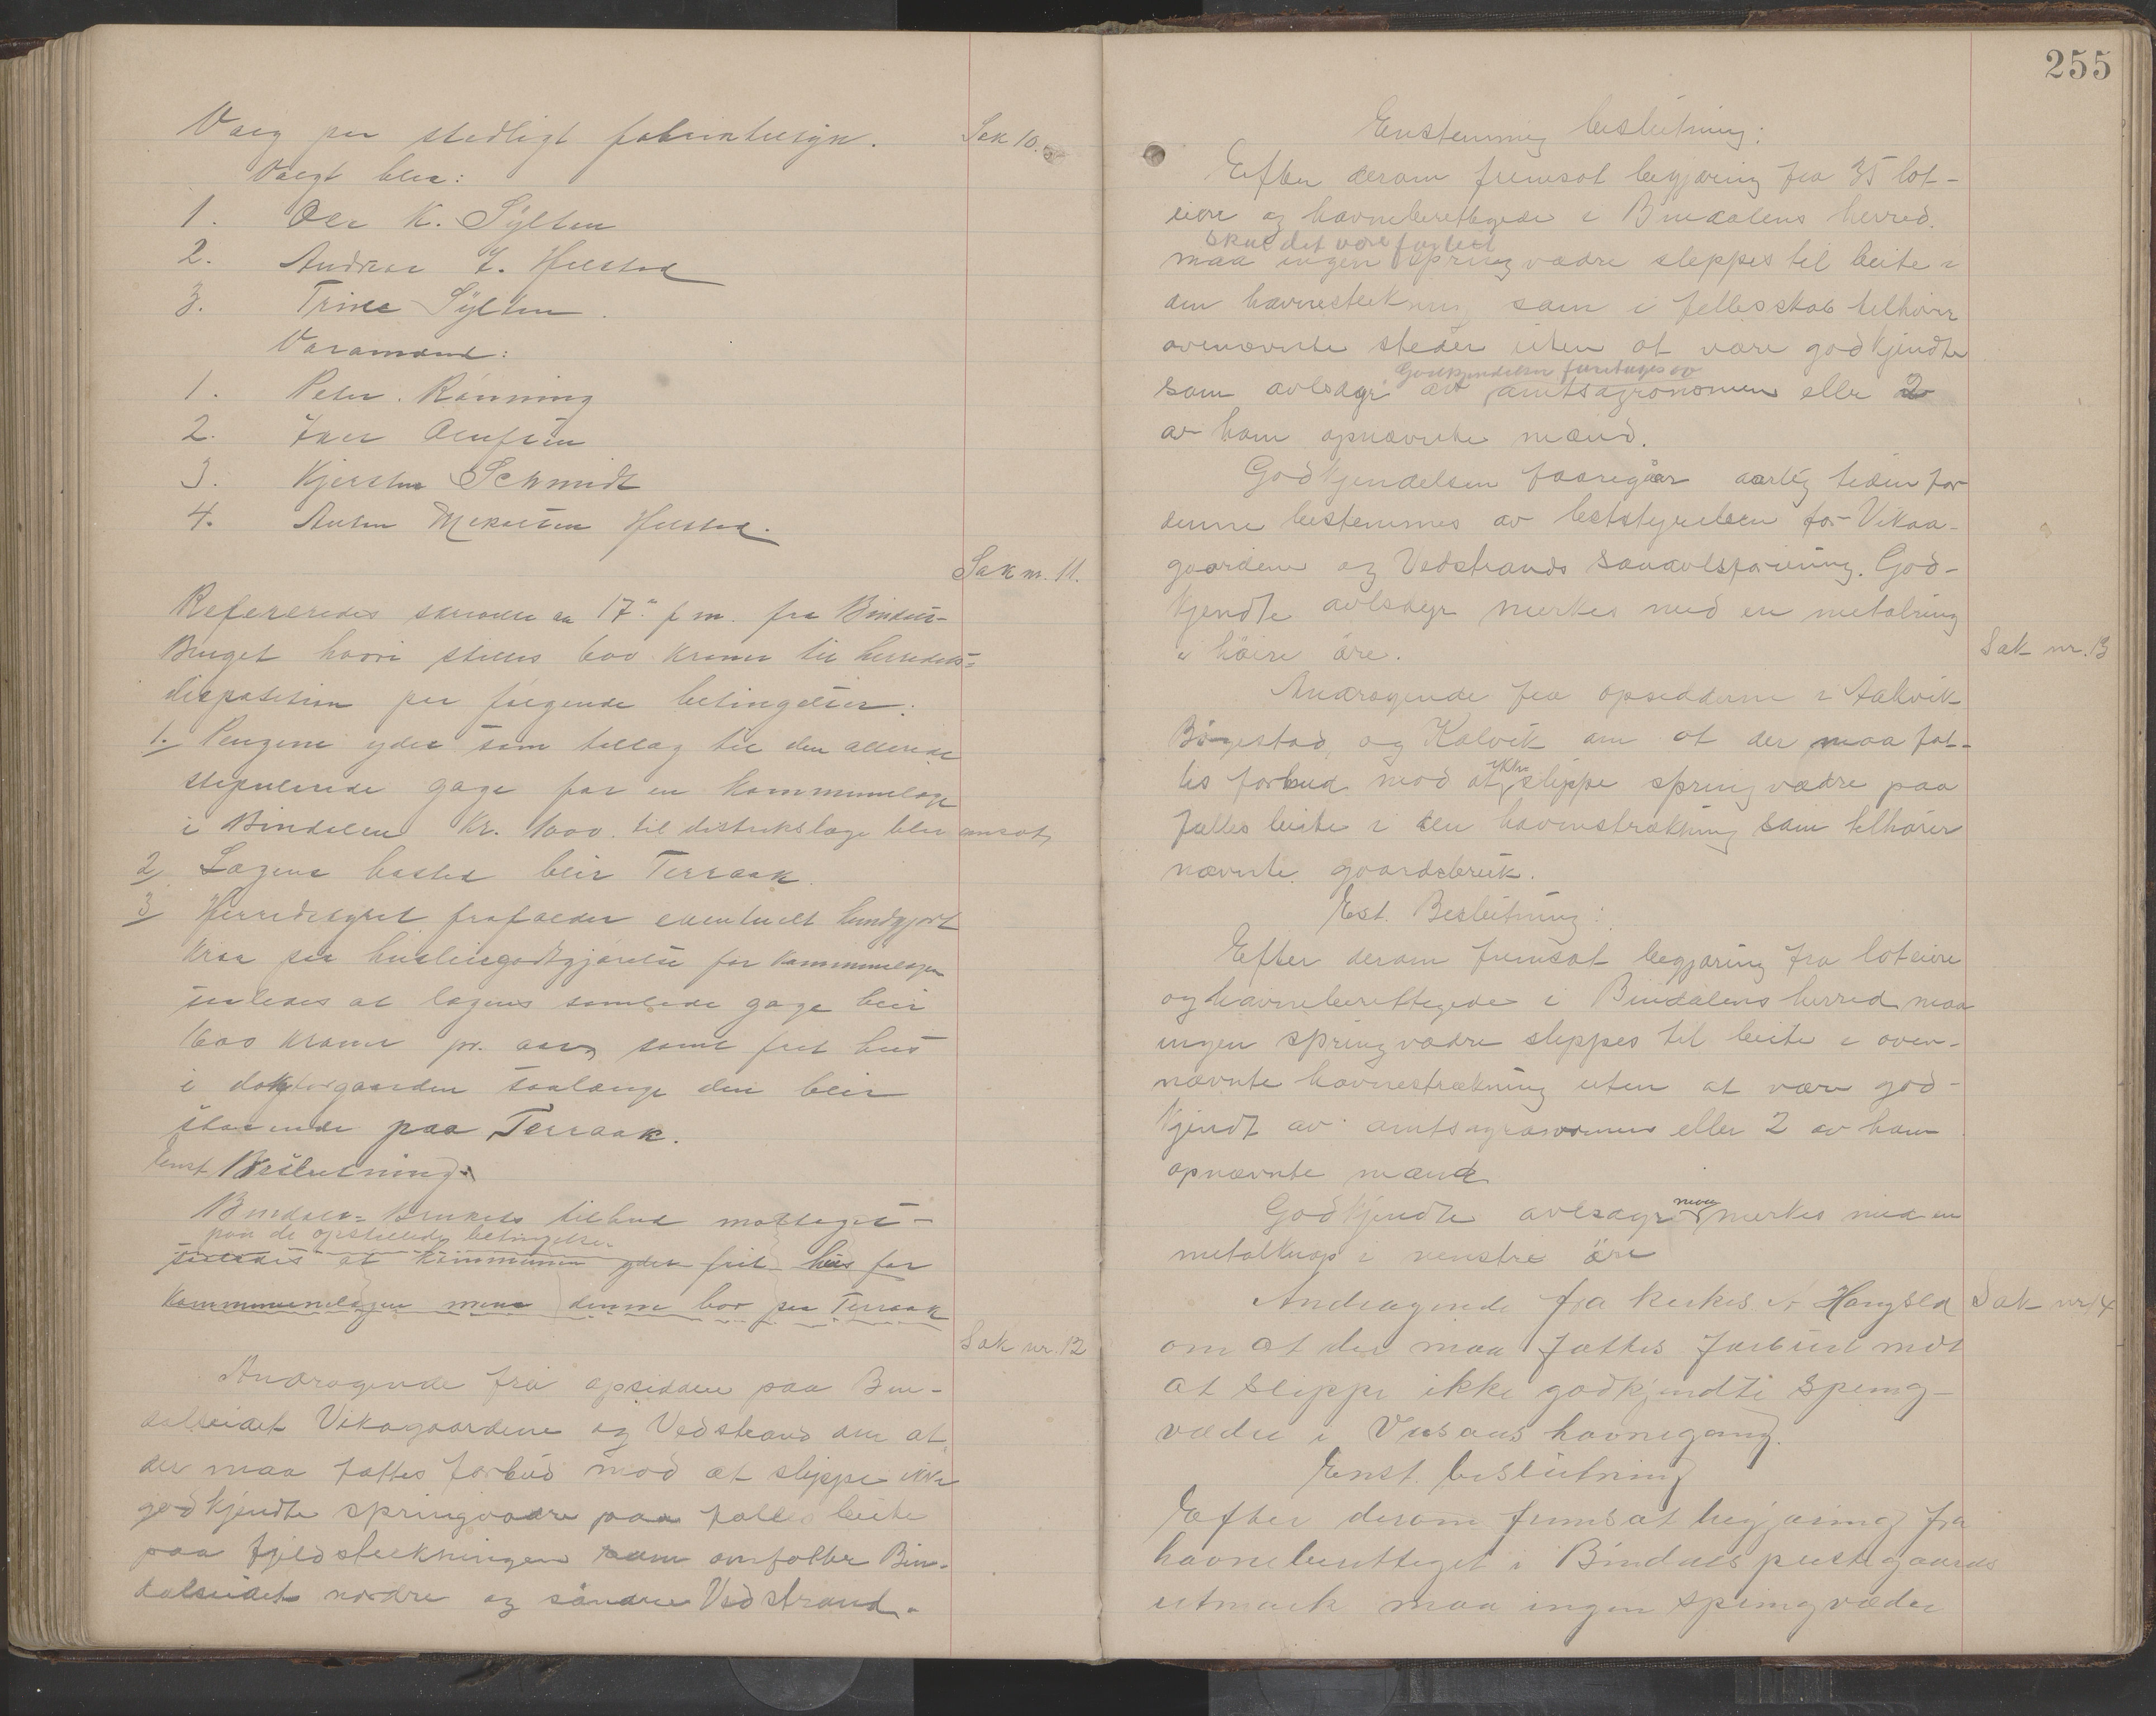 Valg paa stedligt fabriktilsyn. Sak 10.
Valgt blev:
1. Ole K. Sylten
2. Andreas J. Helstad
3. Trine Sylten.
Varamænd:
1. Peter Rønning
2. Iver Olufsen
3. Kjersten Schmidt
4. Anton Helstad.
Sak nr. 11.
Refereredes skrivelse av 17de f. m. fra Bindals-
Bruget hvori stilles 600 kroner til herredets
disposition paa følgende betingelser:
1. Pengene ydes som tillæg til den allerede
stipulerede gage for en kommunelæge
i Bindalen Kr. 1000. til distriktslæge blir ansat,
2. Lægens bosted blir Terraak.
3. Herredstyret frafalder eventuelt
krav paa husleiegodtgjørelse for kommunelægen
saaledes at lægens samlede gage blir
1600 kroner pr. aar, samt frit hus
i doktorgaarden saalænge den blir
staaende paa Terraak.
Enst. Beslutning:
Bindals-Brukets tilbud mottages
paa de opstillede betingelser
saaledes at kommunen yder frit hus for
kommunelægen mens denne bor paa Terraak
Sak nr. 12
Andragende fra opsiddere paa Bin-
dalseidet Vikagaardene og Vedstrand om at
der maa fattes forbud mod at slippe ikke
godkjendte springvædre paa fælles beite
paa fjeldstrekningen som omfatter Bin-
dalseidet nordre og søndre Vedstrand.
255
Enstemmig beslutning:
Efter derom fremsat begjæring fra 35 lot-
eiere og havneberettigede i Bindalens herred
skal det være forbudt
maa ingen springvædre sleppes til beite i
den havnestrekning som i fellesskab tilhører
ovennævnte steder uten at være godkjendte
Godkjendelsen foretages av
som avlsdyr av amtsagronomen eller 2
av ham opnævnte mænd.
Godkjendelsen foregaar aarlig tiden for
denne bestemmes av beitstyrelsen for Vikaa-
gaardene og Vedstrands saueavlsforening. God-
kjendte avlsdyr merkes med en metalring
i høire øre.
Sak nr. 13
Andragende fra opsidderne i Aakvik
Bøgestad, og Kalvik om at der maa fat-
tes forbud mod at ikke slippe springvædre paa
fælles beite i den havnestrækning som tilhører
nævnte gaardsbruk.
Est. Beslutning:
Efter derom fremsat begjæring fra loteiere
og havneberettigede i Bindalens herred maa
ingen springvædre sleppes til beite i oven-
nævnte havnestrækning uten at være god-
kjendt av amtsagronomen eller 2 av ham
opnævnte mænd.
Godkjendte avlsdyr maa merkes med en
metalknap i venstre øre
Andragende fra Hangseth Sak nr 14
om at der maa fattes forbud mot
at slippe ikke godkjendte spring-
vædre i havnegang.
Enst. beslutning
Efter derom fremsat begjæring fra
havneberettiget i Bindals prestegaards
utmark maa ingen springvæder